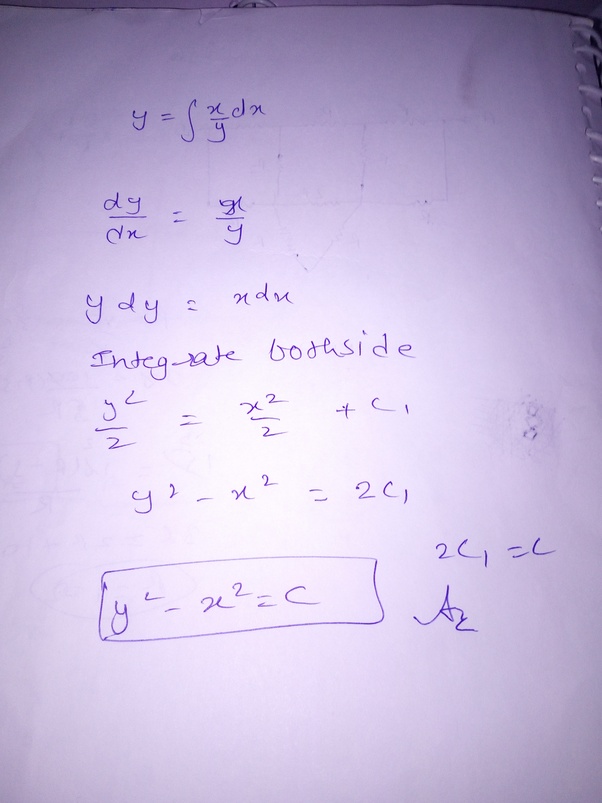 y = ∫ x/y dx
dy/dx = x/y
y dy = x dx
Integrate bothside
y²/2 = x²/2 + C₁
y² - x² = 2C₁
2C₁ = C
y² - x² = C